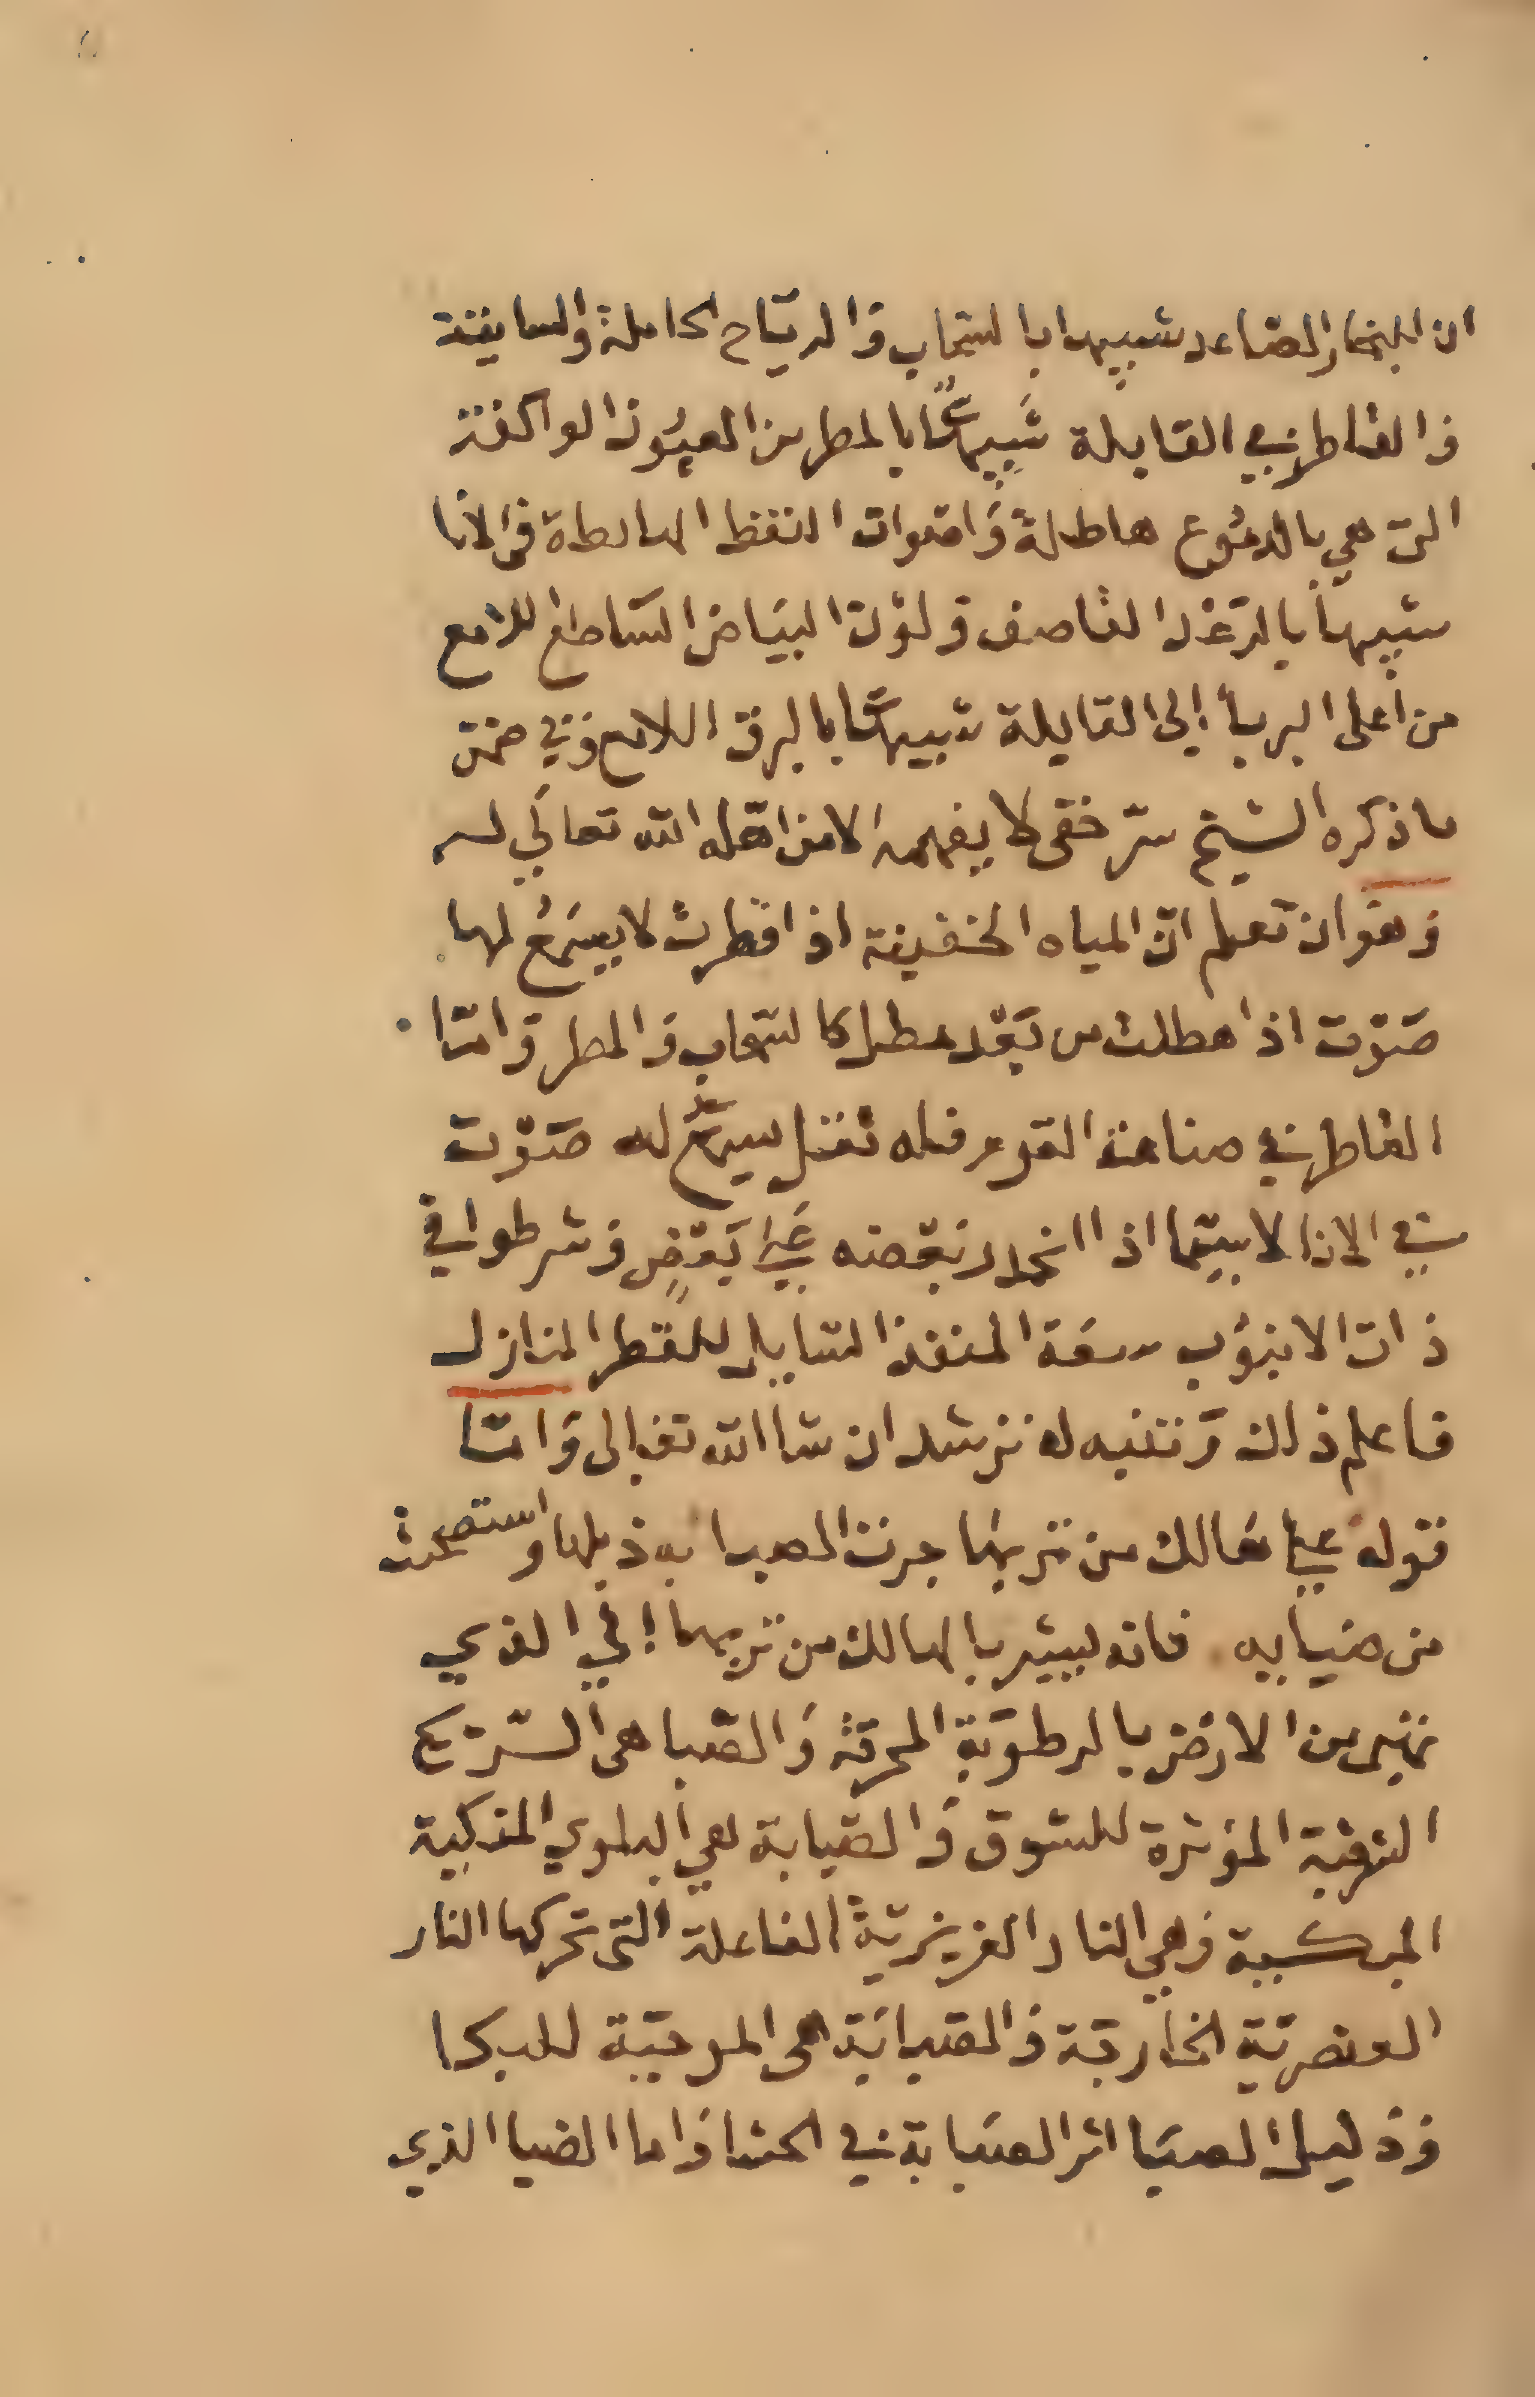 ان البخار الصاعد شبيها بالسحاب والرياح الحاملة والسايقة
والقاطر في القابلة شبيها بالمطر من العيون الواكفة
التي هي بالدموع هاطلة واصوات النقط الهابطة في الانا
شبيها بالرعد القاصف ولون البياض الساطع اللامع
من اعلى البربا الى القابلة شبيها بالبرق اللامع وفي ضمن
ما ذكره الشيخ سر خفي لا يفهمه الا من اهله الله تعالى له
وهو ان تعلم ان المياه الخفيفة اذا قطرت لا يسمع لها
صوت اذا هطلت من بعد هطل كالسحاب والمطر واما
القاطر في صناعة القوم فله ثقل يسمع له صوت
في الانا لاسيما اذا انحدر بعضه على بعض وشرطوا في
ذات الانبوب سعة المنفذ السايل للقطر المنازل
فاعلم ذلك وتنبه له ترشد ان شا الله تعالى واما
قوله على هالك من تربها جرت الصبا به ذيلها واستضحت
من ضيابه فانه يشير بالهالك من تربها الى الذي
تهبى من الارض بالرطوبة المحرقة والصبا هي الريح
الشرقية المؤثرة للشوق والصبابة هي البلوي المذكية
المركبة وهي النار الغريزية الفاعلة التي تحركها النار
العنصرية الخارجة والصبابة هي الموجبة للبكا
وذيل الصبا اثر الصبابة في الحشا واما الضيا الذي